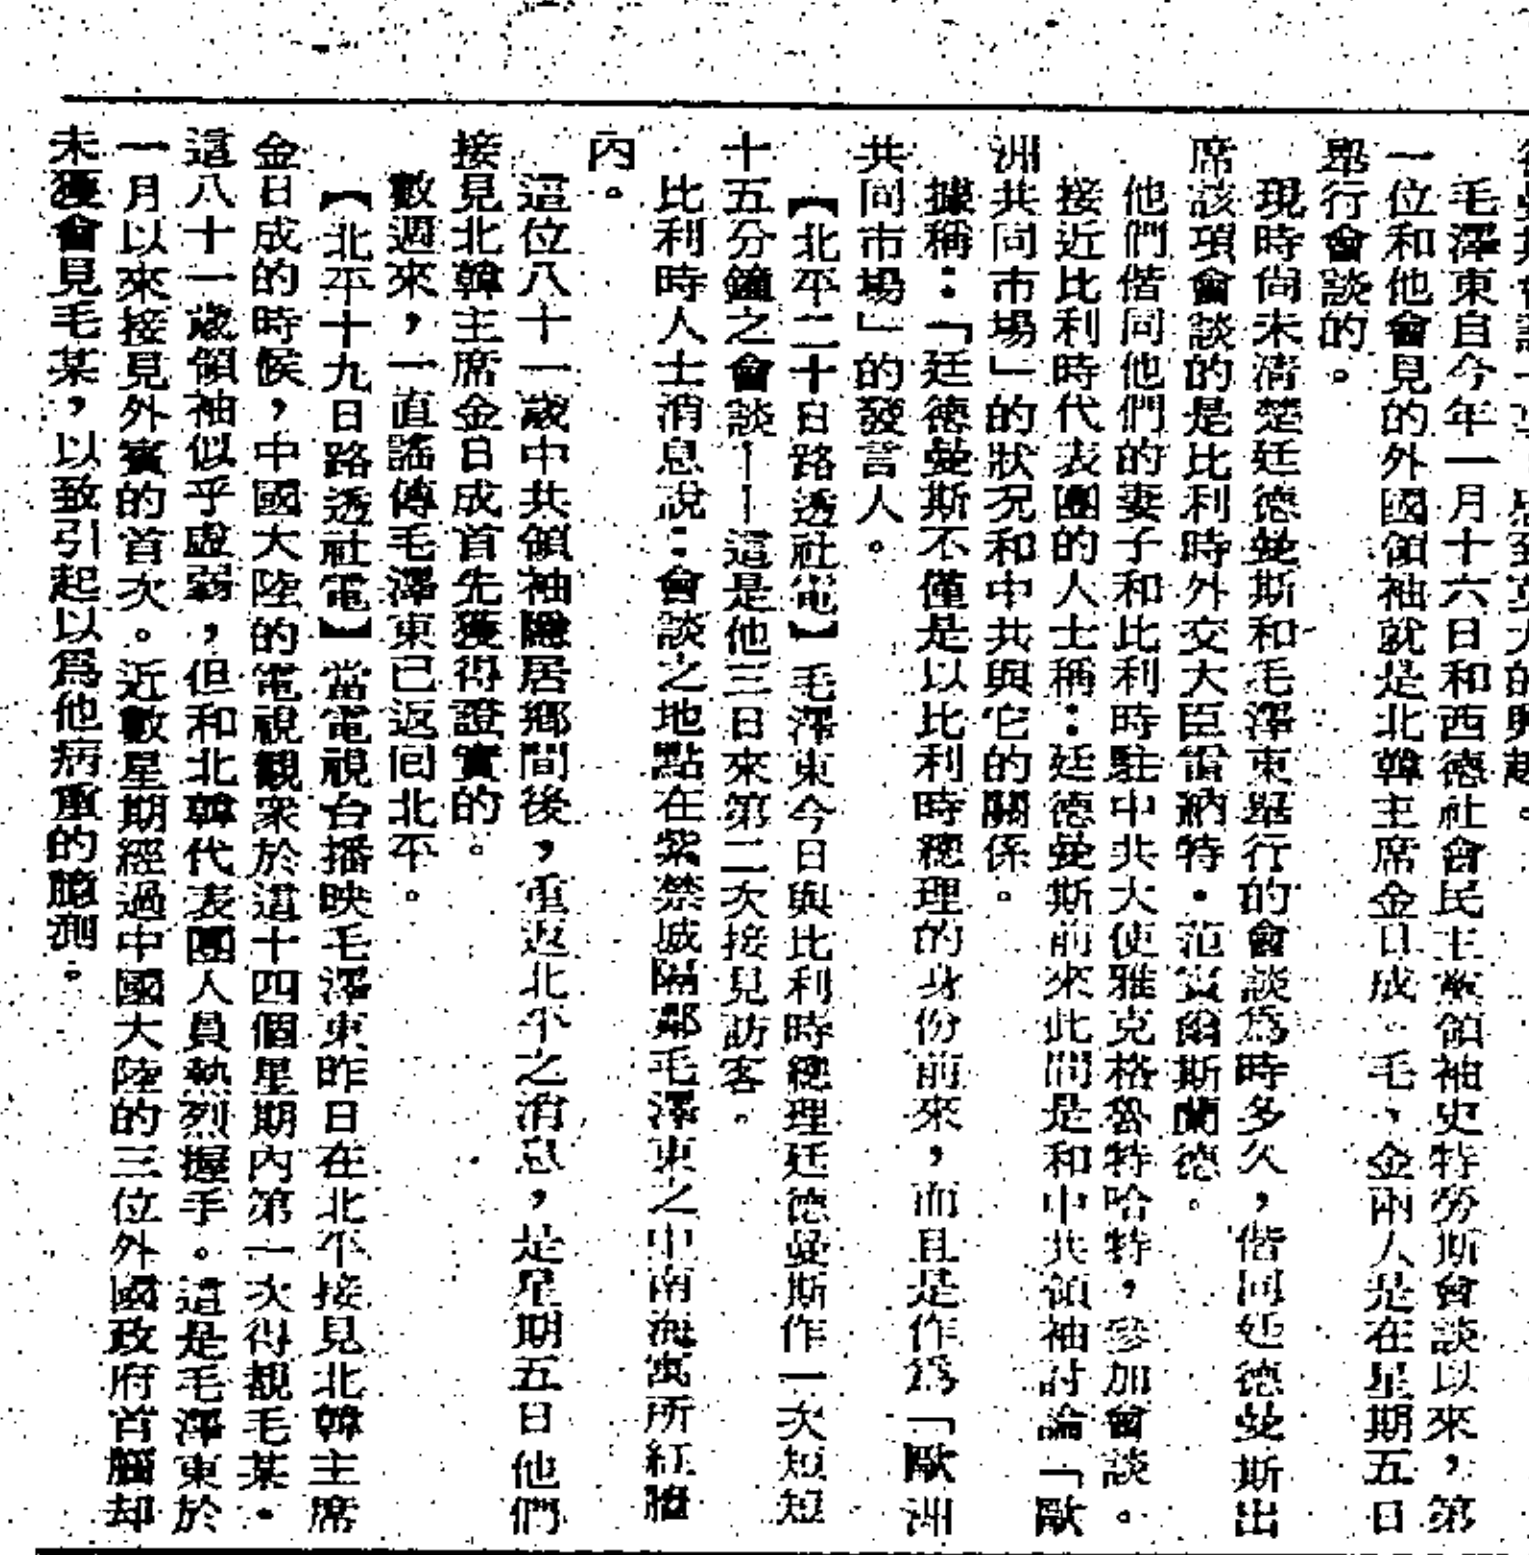 毛澤東自今年一月十六日和西德社會民主黨領袖史特勞斯會談以來，第
一位和他會見的外國領袖就是北韓主席金日成。毛，金兩人是在星期五日
舉行會談的。
現時尚未清楚廷德曼斯和毛澤東舉行的會談爲時多久，偕同廷德曼斯出
席該項會談的是比利時外交大臣雷納特·范 爾斯蘭德。
他們偕同他們的妻子和比利時駐中共大使雅克格魯特哈特，參加會談。
接近比利時代表團的人士稱：廷德曼斯前來此間是和中共領袖討論「歐
洲共同市場」的狀況和中共與它的關係。
據稱：「廷德曼斯不僅是以比利時總理的身份前來，而且是作爲「歐洲
共同市場」的發言人。
【北平二十日路透社電】毛澤東今日與比利時總理廷德曼斯作一次短短
十五分鐘之會談——這是他三日來第二次接見訪客。
比利時人士消息說：會談之地點在紫禁城隔鄰毛澤東之中南海寓所紅牆
內。
這位八十一歲中共領袖隱居鄉間後，重返北平之消息，是星期五日他們
接見北韓主席金日成首先獲得證實的。
數週來，一直謠傳毛澤東已返回北平。
【北平十九日路透社電】當電視台播映毛澤東昨日在北平接見北韓主席
金日成的時候，中國大陸的電視觀衆於這十四個星期內第一次得覩毛某·
這八十一歲領袖似乎虛弱，但和北韓代表團人員熱烈握手。這是毛澤東於
一月以來接見外賓的首次。近數星期經過中國大陸的三位外國政府首腦却
未獲會見毛某，以致引起以爲他病重的臆測。